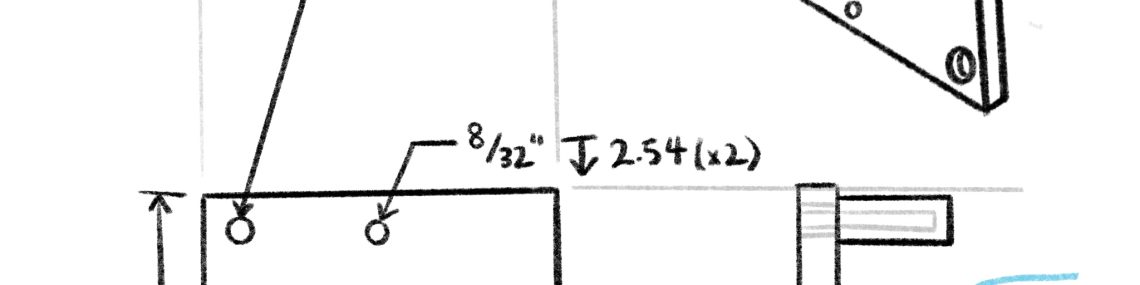 8/32" ↧ 2.54 (x2)